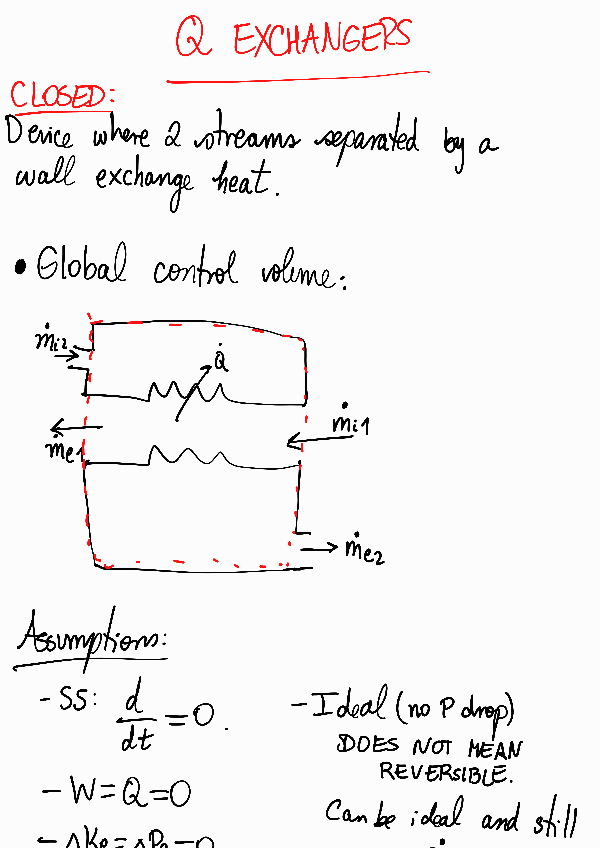 Q EXCHANGERS
CLOSED:
Device where 2 streams separated by a
wall exchange heat.
• Global control volume:
ṁi2
Q̇
ṁi1
ṁe1
ṁe2
Assumptions:
- SS: d/dt = 0.
- W = Q = 0
- ΔKe = ΔPe = 0
- Ideal (no P drop)
DOES NOT MEAN
REVERSIBLE.
Can be ideal and still